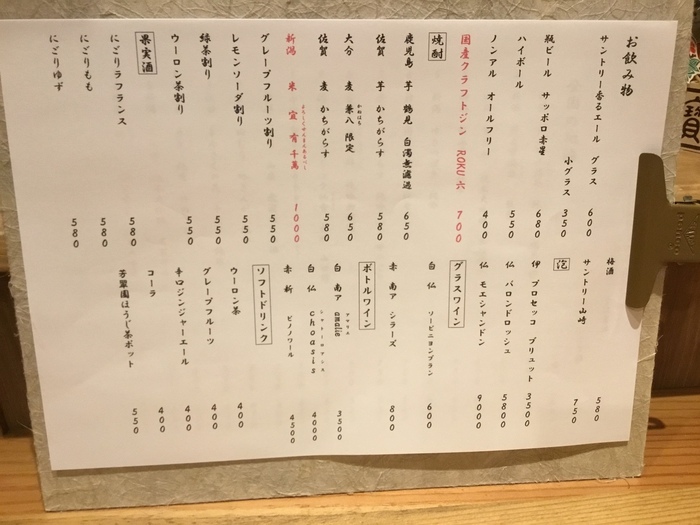 お飲み物
サントリー香るエール グラス 600
小グラス 350
瓶ビール サッポロ赤星 680
ハイボール 550
ノンアル オールフリー 400
国産クラフトジン ROKU 六 700
焼酎
鹿児島 芋 鶴見 白濁無濾過 650
佐賀 芋 かちがらす 580
大分 麦 兼八 限定 650
かねはち
佐賀 麦 かちがらす 580
新潟 米 宜有千萬 1000
グレープフルーツ割り 550
レモンソーダ割り 550
緑茶割り 550
ウーロン茶割り 550
果実酒
にごりラフランス 580
にごりもも 580
にごりゆず 580
梅酒
サントリー山崎 580
750
泡
伊 プロセッコ ブリュット 3500
仏 バロンドロッシュ 5800
仏 モエシャンドン 9000
グラスワイン
白 仏 ソービニヨンブラン 600
赤 南ア シラーズ 800
ボトルワイン
白 南ア 3500
白 仏 choasis 4000
赤 新 ピノノワール 4500
ソフトドリンク
ウーロン茶 400
グレープフルーツ 400
辛口ジンジャーエール 400
コーラ 400
芳翠園ほうじ茶ポット 550